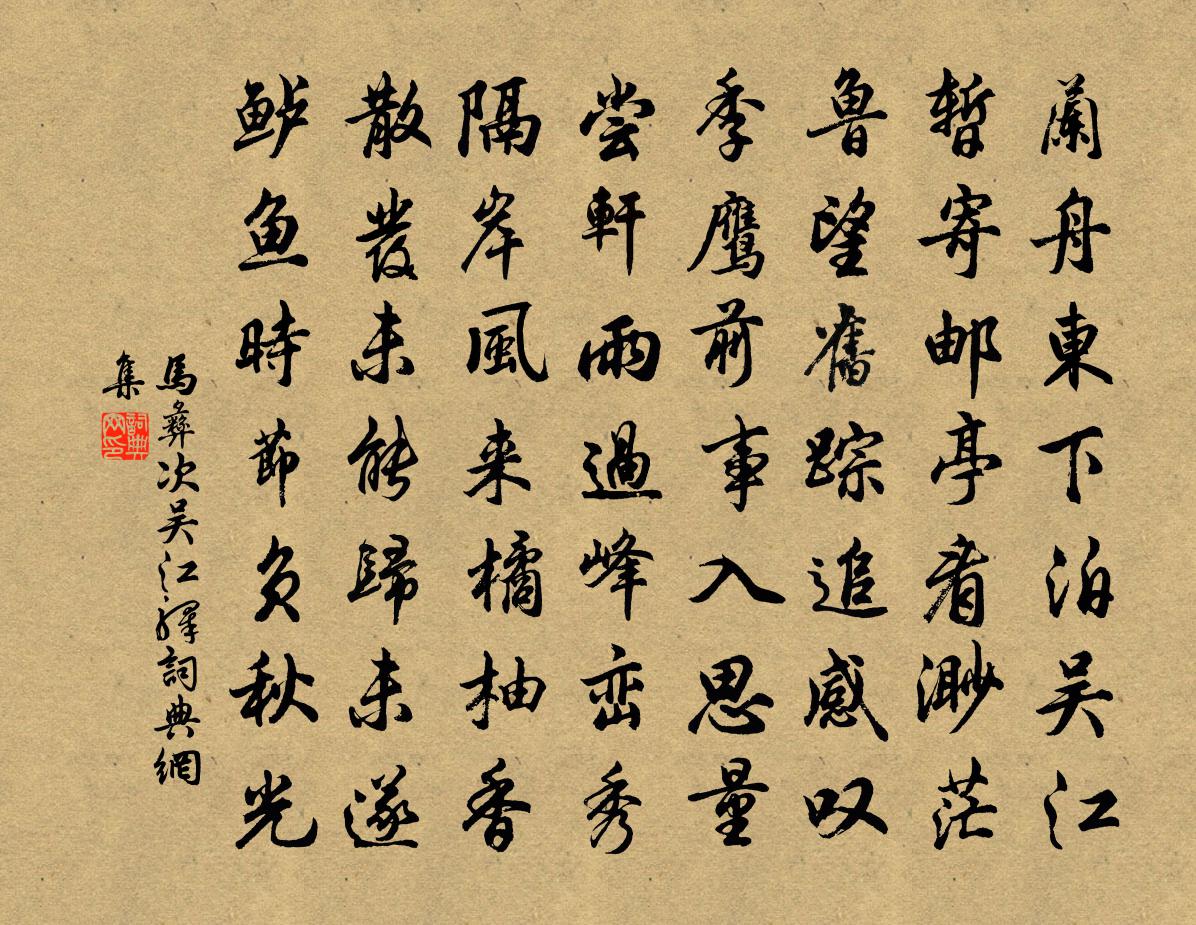 蘭舟東下泊吴江
暫寄邮亭看渺茫
鲁望舊踪追感叹
季鹰前事入思量
尝軒雨過峰峦秀
隔岸風来橘柚香
散發未能歸未遂
鲈鱼時節负秋光
馬彝次吴江驛詞典網
集
詞典网印